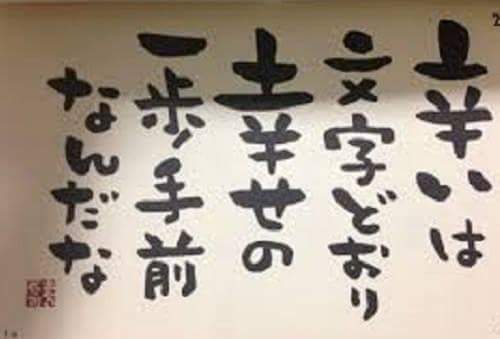 辛いは
文字どおり
幸せの
一歩手前
なんだな